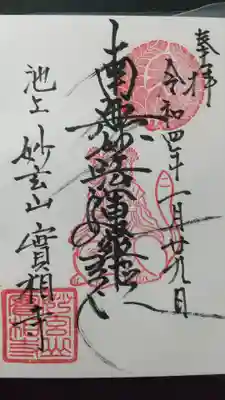 奉拝
令和四年一月廿九日
南無妙法蓮華経
池上 妙玄山 實相寺
妙玄山實相寺